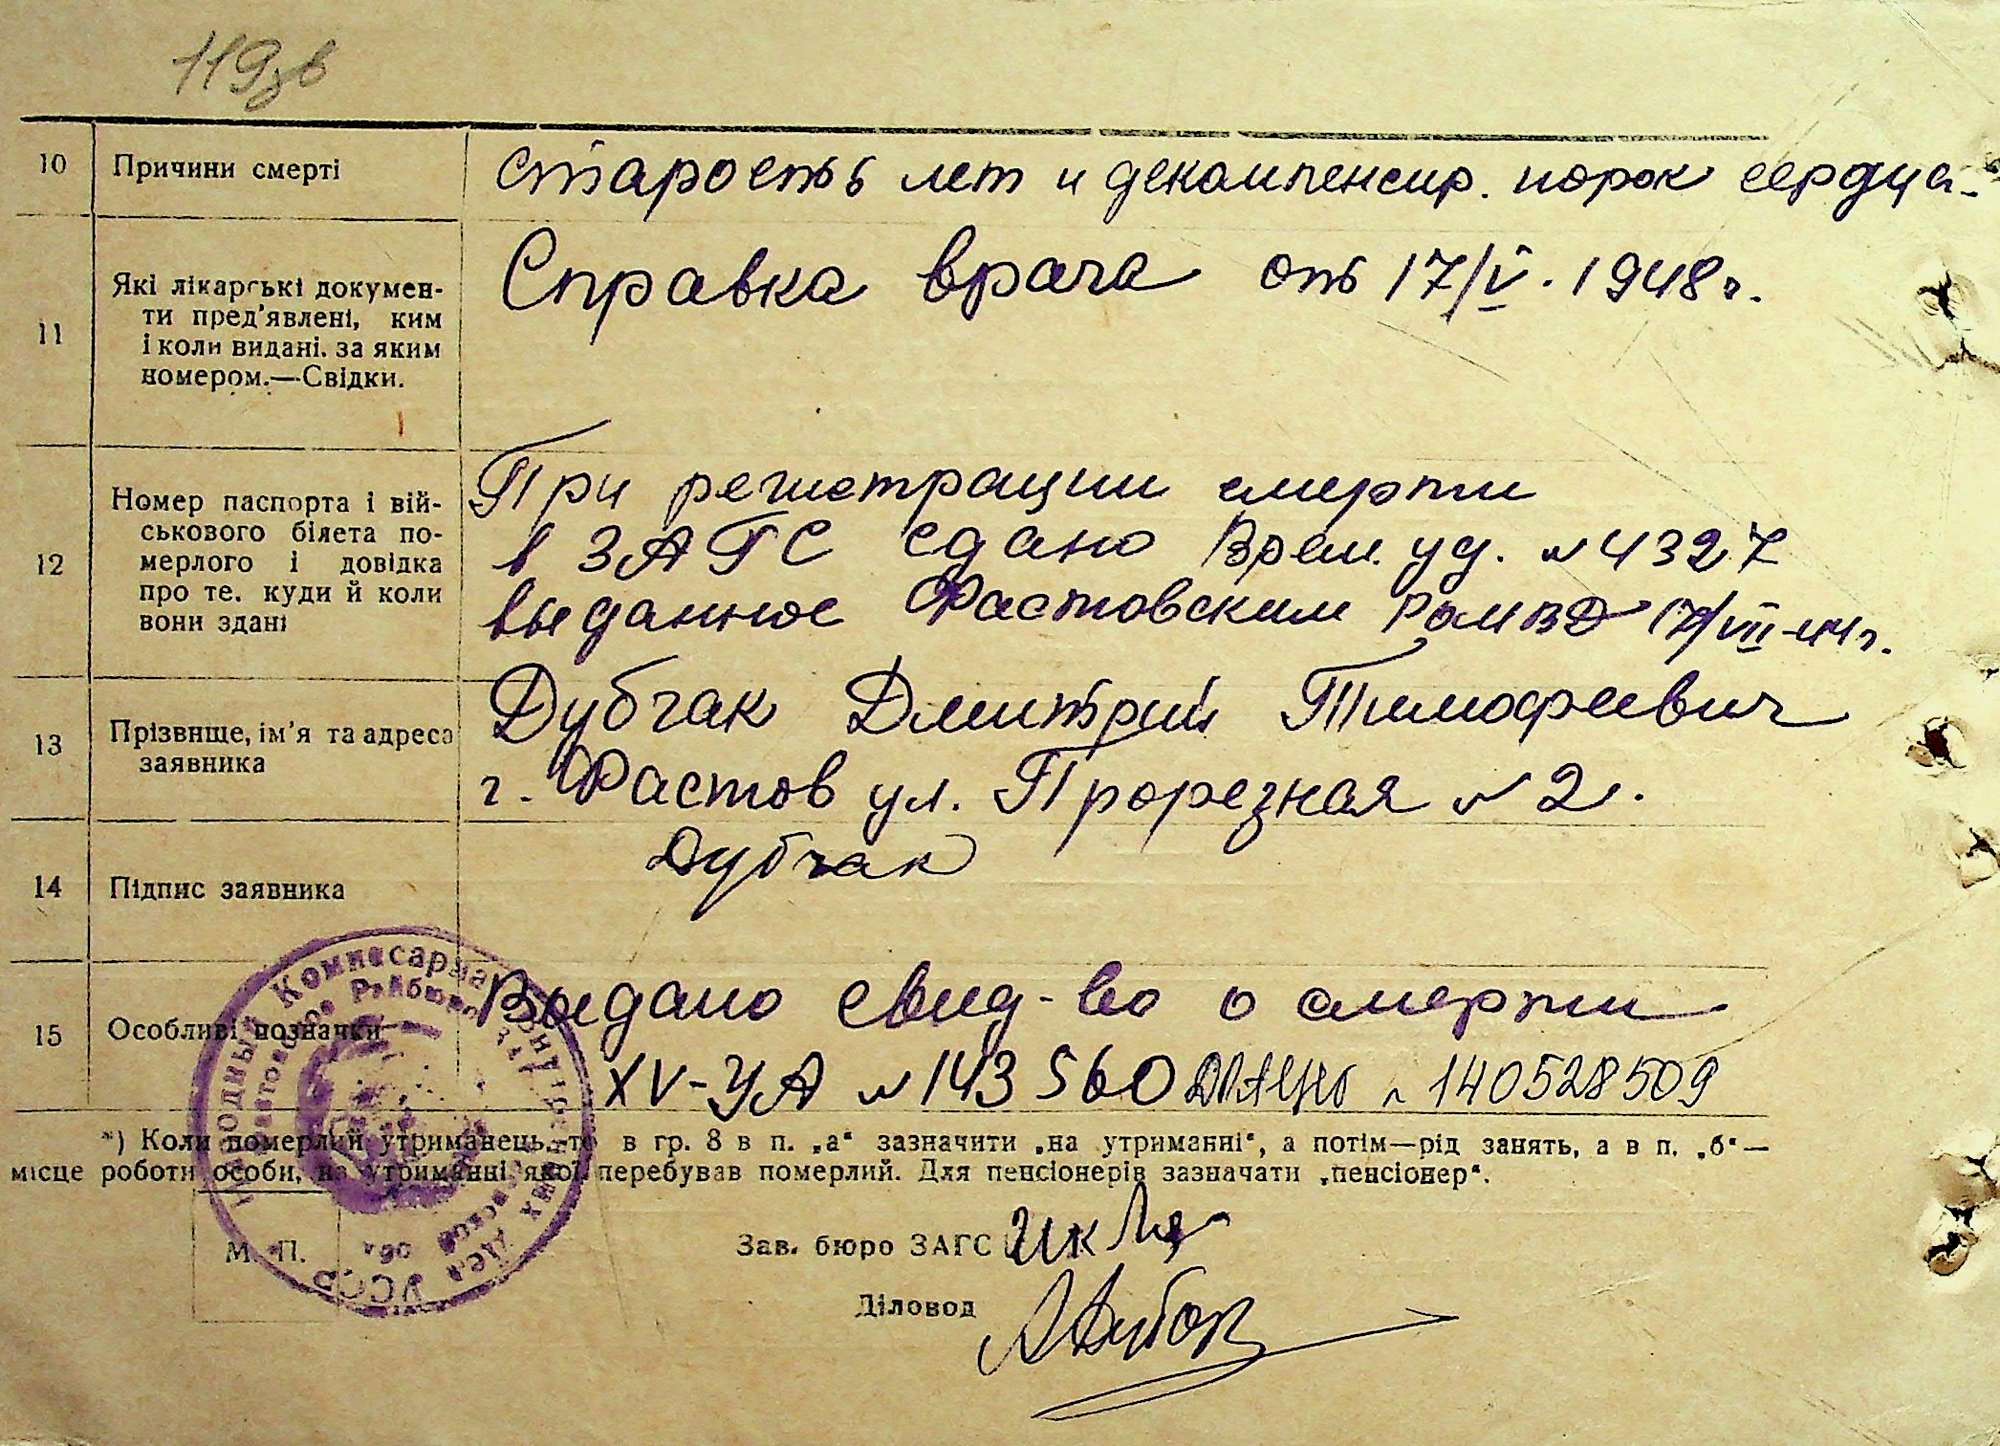 119зв
10 Причини смерті старость лет и декомпенсир. порок сердца.
11 Які лікарські докумен-
ти пред'явлені, ким
і коли видані. за яким
номером.—Свідки.
Справка врача от 17/V. 1948г.
12 Номер паспорта і вій-
ськового білета по-
мерлого і довідка
про те. куди й коли
вони здані
При регистрации смерти
в ЗАГС сдано Врем. уд. №4327
выданное Фастовским РОМВД 17/VII-44г.
13 Прізвище, ім'я та адреса
заявника
Дубчак Дмитрий Тимофеевич
г. Фастов ул. Прорезная №2.
14 Підпис заявника Дубчак
15 Особливі позначки
Выдано свид-во о смерти
XV-УА №143560 140528509
*) Коли померлий утриманець, то в гр. 8 в п. „а“ зазначити „на утриманні“, а потім—рід занять, а в п. „б“—
місце роботи особи, на утриманні якої перебував померлий. Для пенсіонерів зазначати „пенсіонер“.
М. П.
Зав. бюро ЗАГС
Діловод
Народный Комиссариат Внутренних Дел УССР